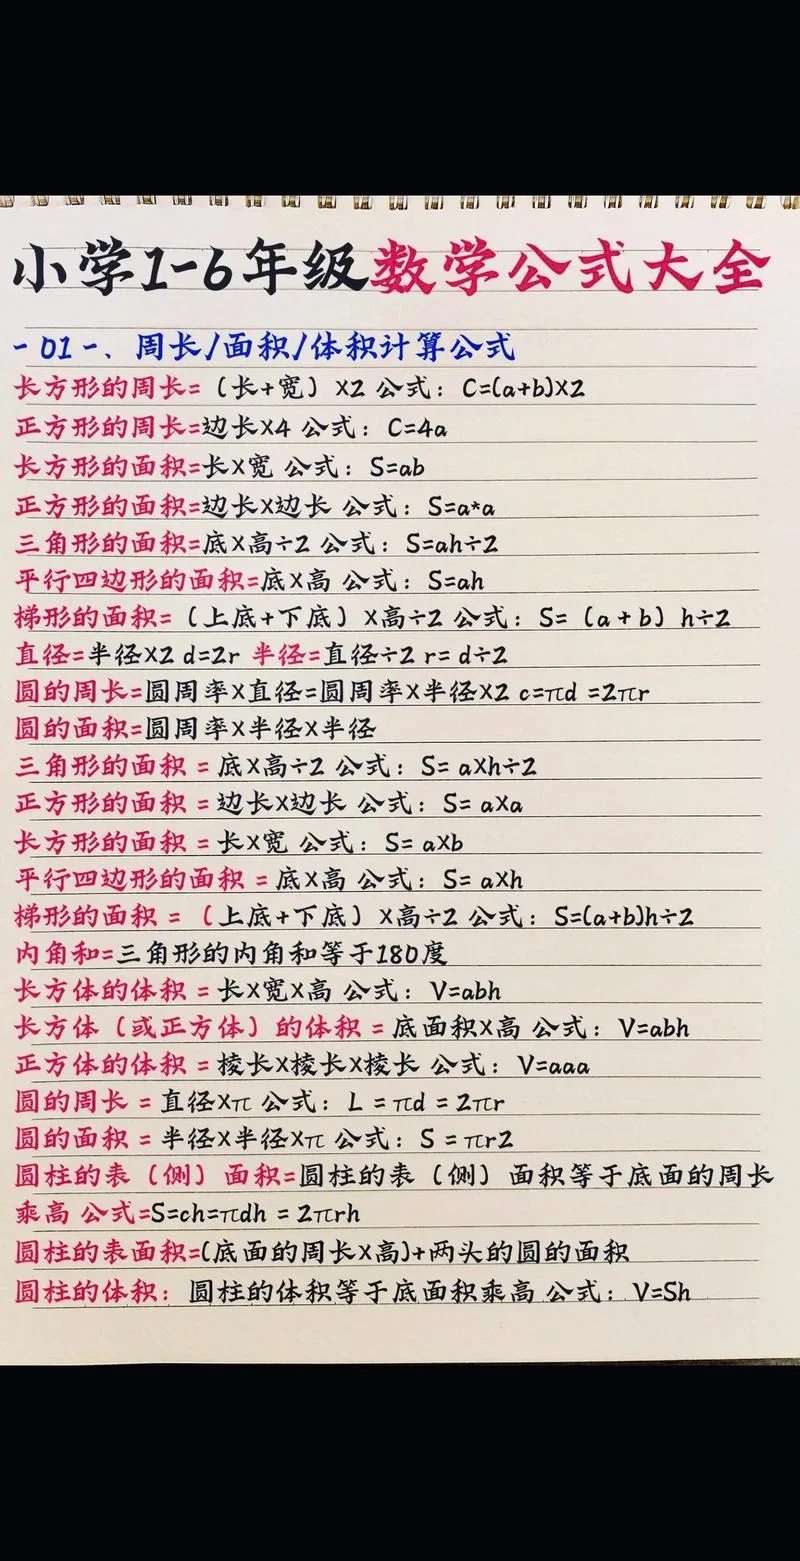 小学1-6年级数学公式大全
- 01 -、周长/面积/体积计算公式
长方形的周长=（长+宽）X2 公式：C=(a+b)X2
正方形的周长=边长X4 公式：C=4a
长方形的面积=长X宽 公式：S=ab
正方形的面积=边长X边长 公式：S=a*a
三角形的面积=底X高÷2 公式：S=ah÷2
平行四边形的面积=底X高 公式：S=ah
梯形的面积=（上底+下底）X高÷2 公式：S=（a+b）h÷2
直径=半径X2 d=2r 半径=直径÷2 r= d÷2
圆的周长=圆周率X直径=圆周率X半径X2 c=πd =2πr
圆的面积=圆周率X半径X半径
三角形的面积 = 底X高÷2 公式：S= aXh÷2
正方形的面积 = 边长X边长 公式：S= aXa
长方形的面积 = 长X宽 公式：S= aXb
平行四边形的面积 = 底X高 公式：S= aXh
梯形的面积 =（上底+下底）X高÷2 公式：S=(a+b)h÷2
内角和=三角形的内角和等于180度
长方体的体积 = 长X宽X高 公式：V=abh
长方体（或正方体）的体积 = 底面积X高 公式：V=abh
正方体的体积 = 棱长X棱长X棱长 公式：V=aaa
圆的周长 = 直径Xπ 公式：L = πd = 2πr
圆的面积 = 半径X半径Xπ 公式：S = πr2
圆柱的表（侧）面积=圆柱的表（侧）面积等于底面的周长
乘高 公式=S=ch=πdh = 2πrh
圆柱的表面积=(底面的周长X高)+两头的圆的面积
圆柱的体积：圆柱的体积等于底面积乘高 公式：V=Sh